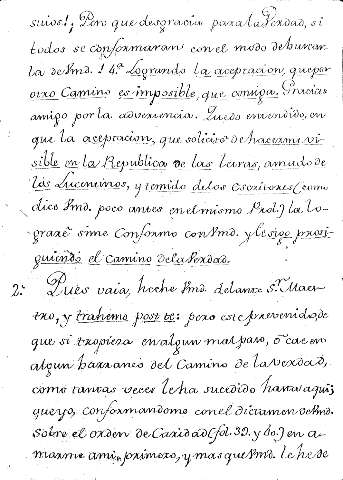 suios!; Pero que desgracia para la Verdad, si
todos se conformaran con el modo de buscar-
la de Vmd. ! 4.ª Logrando la aceptacion, que por
otro Camino es imposible, que consiga. Gracias
amigo por la advertencia. Quedo entendido, en
que la aceptacion, que solicito de hacerme vi-
sible en la Republica de las letras, amado de
los Luceninos, y temido de los escritores (como
dice Vmd. poco antes en el mismo Prol.) la lo-
graré si me Conformo con Vmd. y le sigo prosi-
guiendo el camino de la Verdad.
2.ª Pues vaia, heche Vmd. delante Sr. Maes-
tro, y trahemo post te: pero este prevenido, de
que si tropieza en algun mal paso, ó cae en
algun barranco del Camino de la Verdad,
como tantas veces le ha sucedido hasta aqui;
que yo, conformandome con el dictamen de Vmd.
sobre el orden de Caridad (fol. 39. y 40.) en a-
marme a mi primero, y mas que Vmd. le he de